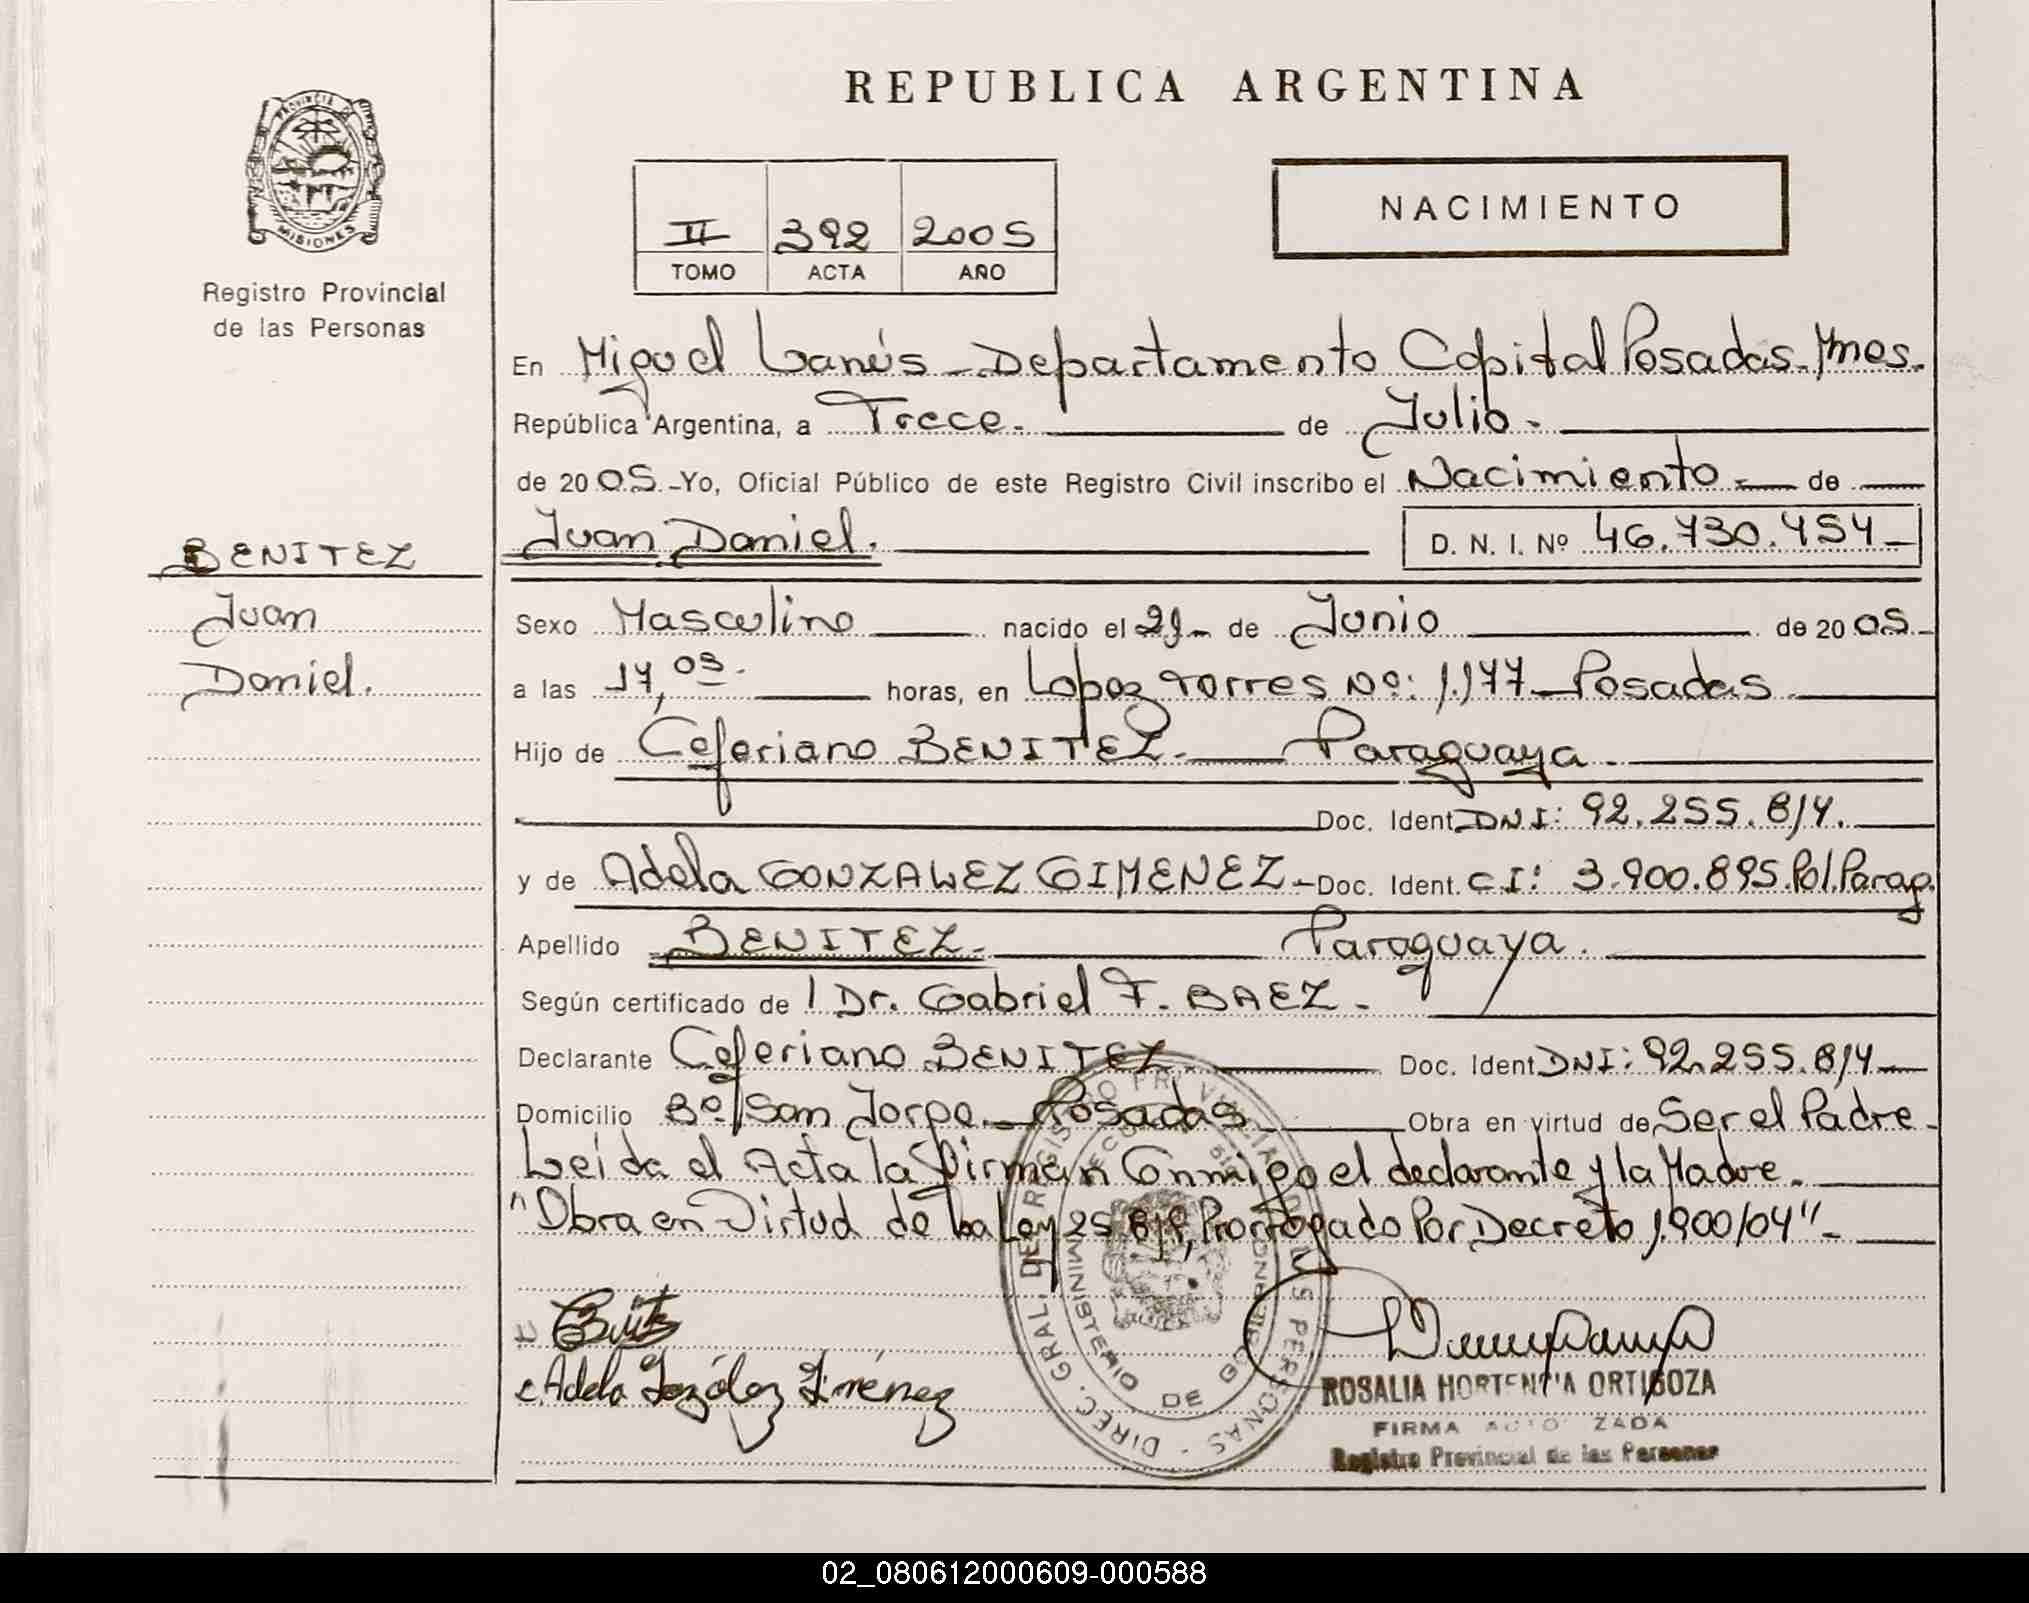 REPUBLICA ARGENTINA
PROVINCIA DE MISIONES
Registro Provincial
de las Personas
II 392 2005
TOMO ACTA AÑO
NACIMIENTO
En Miguel Lanús - Departamento Capital Posadas. Mnes.
República Argentina, a Trece. de Julio.
de 2005 - Yo, Oficial Público de este Registro Civil inscribo el Nacimiento - de
Juan Daniel. D. N. I. Nº 46.730.454
BENITEZ
Juan
Daniel.
Sexo Masculino nacido el 29 de Junio de 2005
a las 17,05. horas, en Lopez Torres Nº: 1.177 - Posadas
Hijo de Ceferiano BENITEZ. Paraguaya.
Doc. Ident. DNI: 92.255.814.
y de Adela GONZALEZ GIMENEZ - Doc. Ident. CI: 3.900.895. Pol. Parag.
Apellido BENITEZ. Paraguaya.
Según certificado de / Dr. Gabriel F. BAEZ.
Declarante Ceferiano BENITEZ Doc. Ident DNI: 92.255.814
Domicilio Bº San Jorge - Posadas Obra en virtud de Ser el Padre
Leida el Acta la firman Conmigo el declarante y la Madre.
"Obra en Virtud de la Ley 25.819, Prorrogado Por Decreto 1.900/04"
Adela González Jiménez
DIREC. GRAL. DE REGISTRO PROVINCIAL DE LAS PERSONAS
MINISTERIO DE GOBIERNO
ROSALIA HORTENCIA ORTIGOZA
FIRMA AUTORIZADA
Registro Provincial de las Personas
02_080612000609-000588